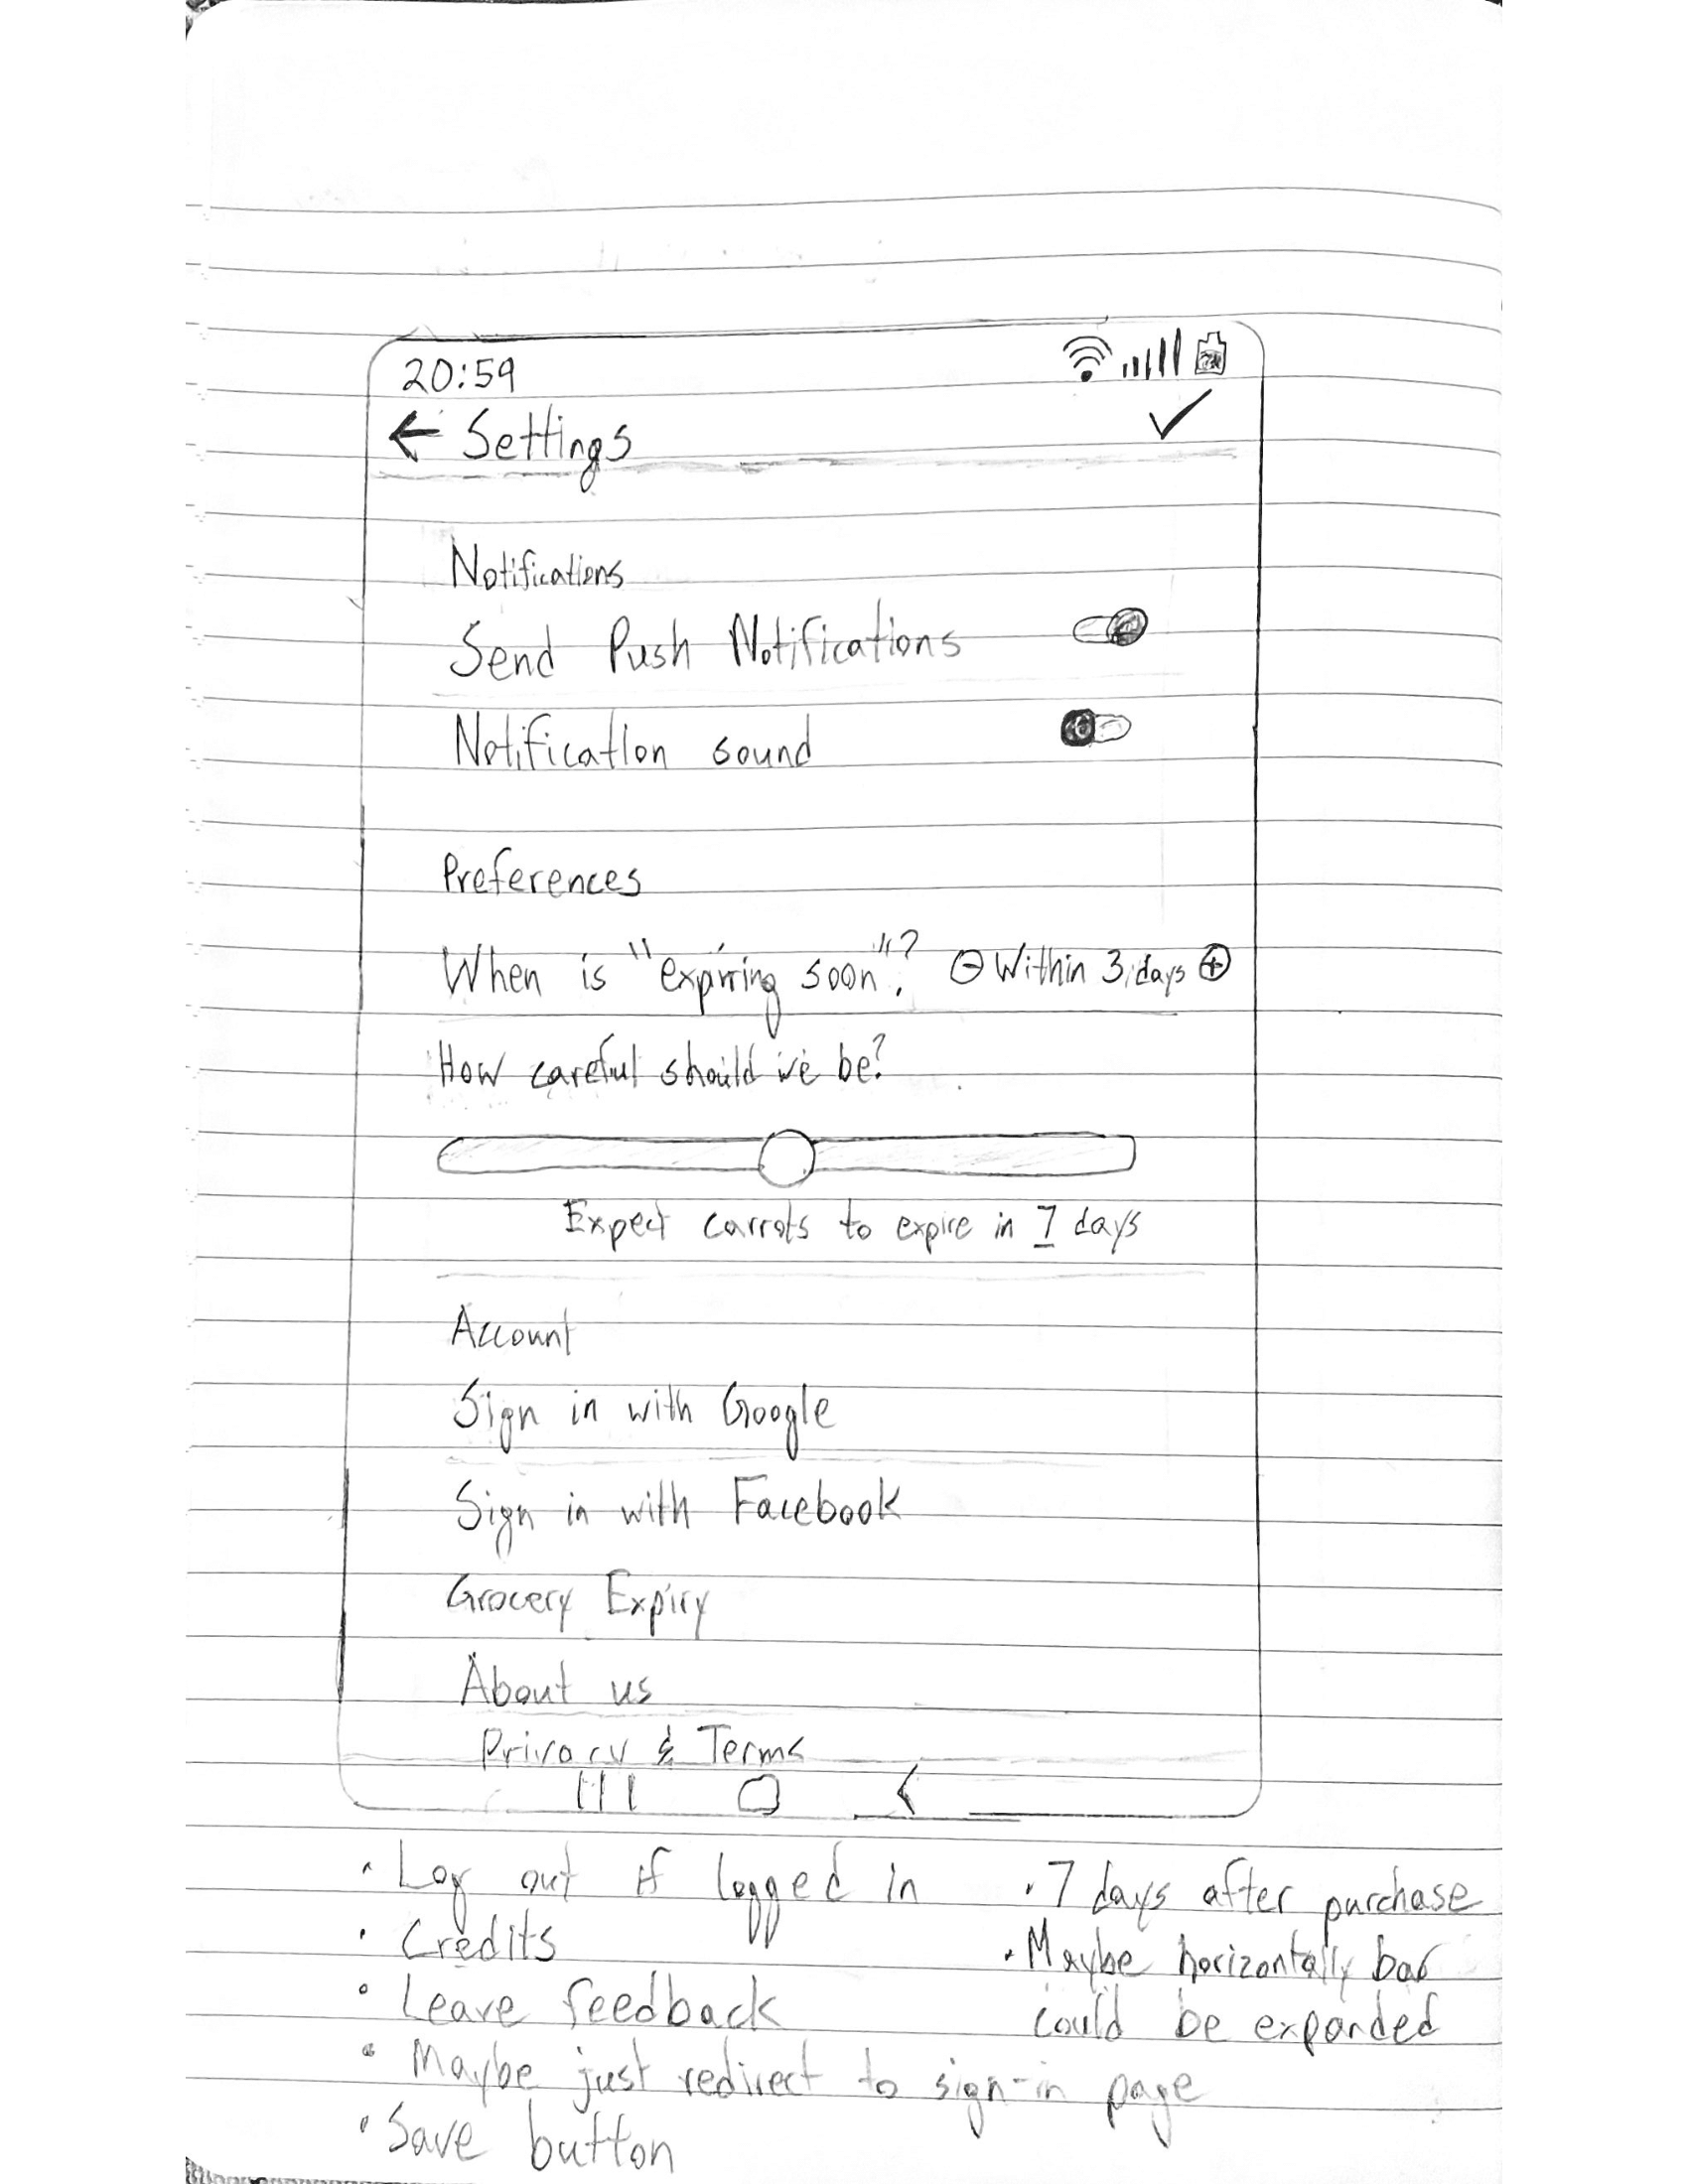 20:59
← Settings ✓
Notifications
Send Push Notifications
Notification sound
Preferences
When is "expiring soon"? ⊖ Within 3 days ⊕
How careful should we be?
Expect carrots to expire in 7 days
Account
Sign in with Google
Sign in with Facebook
Grocery Expiry
About us
Privacy & Terms
• Log out if logged in
• Credits
• Leave feedback
• Maybe just redirect to sign-in page
• Save button
• 7 days after purchase
• Maybe horizontally bar
could be expanded